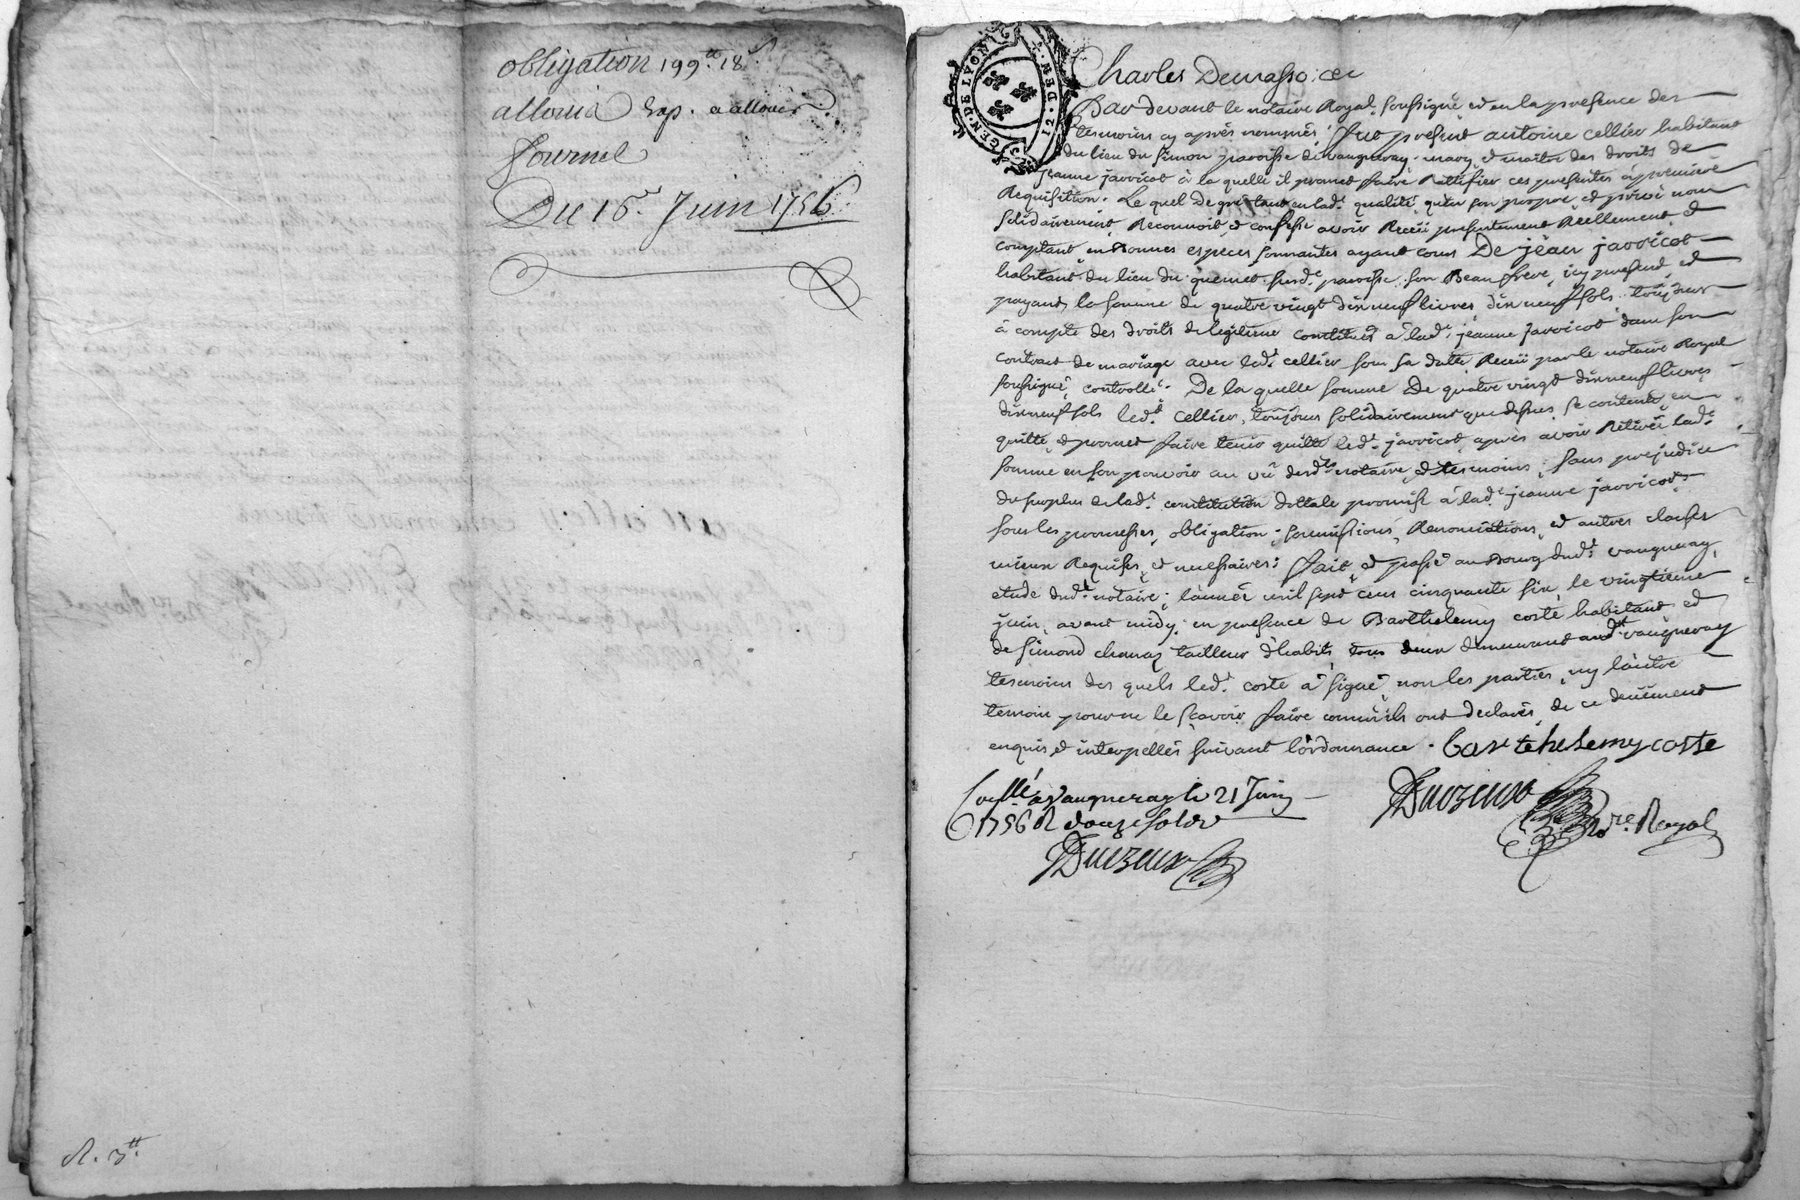 obligation 199.tt 18 s.
allouis Exp. a allouer
fournel
Du 15.e Juin 1756.
R. 3.tt
GEN. DE LYON
12. DEN.
Charles Demasso cer
Par devant le notaire Royal soussigné et en la presence des
tesmoins cy après nommés, fut present antoine cellier habitant
du lieu du simon paroisse de vaugneray mary et maitre des droits de
jeanne jarricot à la quelle il promet faire Rattifier ces presentes à premiere
Requisition. Le quel de gré tant en lad.e qualité qu'en son propre et privé nom
solidairement, Reconnoit et confesse avoir Receü presentement Reellement et
comptant en bonnes especes sonnantes ayant cours De jean jarricot
habitant du lieu du quemet susd.e paroisse son Beau frere, icy present et
payant la somme de quatre vingt dix neuf livres dix neuf sols toujours
à compte des droits de legitime constitués à lad.e jeanne jarricot dans son
contract de mariage avec led.t cellier sous sa datte Receü par le notaire Royal
soussigné, controllé. De la quelle somme De quatre vingt dix neuf livres
dix neuf sols led.t cellier, toujours solidairement que dessus se contente en
quitte et promet faire tenir quitte led.t jarricot, après avoir Retiréé lad.e
somme en son pouvoir au vû desd.ts notaire et tesmoins; sans prejudice
du surplus de lad.e constitution dottale promise à lad.e jeanne jarricot
sous les promesses, obligation, soumissions, Renonciations, et autres clauses
mieux Requises et necessaires; fait et passé au Bourg dud.t vaugneray,
etude dud.t notaire; l'année mil sept cens cinquante six, le vingtieme
juin, avant midy; en presence de Barthelemy coste habitant et
de simond chanas tailleur d'habits tous deux demeurant aud.t vaugneray
tesmoins des quels led.t coste a signé, non les parties, ny l'autre
temoin pour ne le sçavoir faire comme ils ont declarés, de ce deüement
enquis et interpellés suivant l'ordonnance. bartehelemy coste
Con.llé à Vaugneray le 21 Juin
1756 R douze sols
n.re Royal